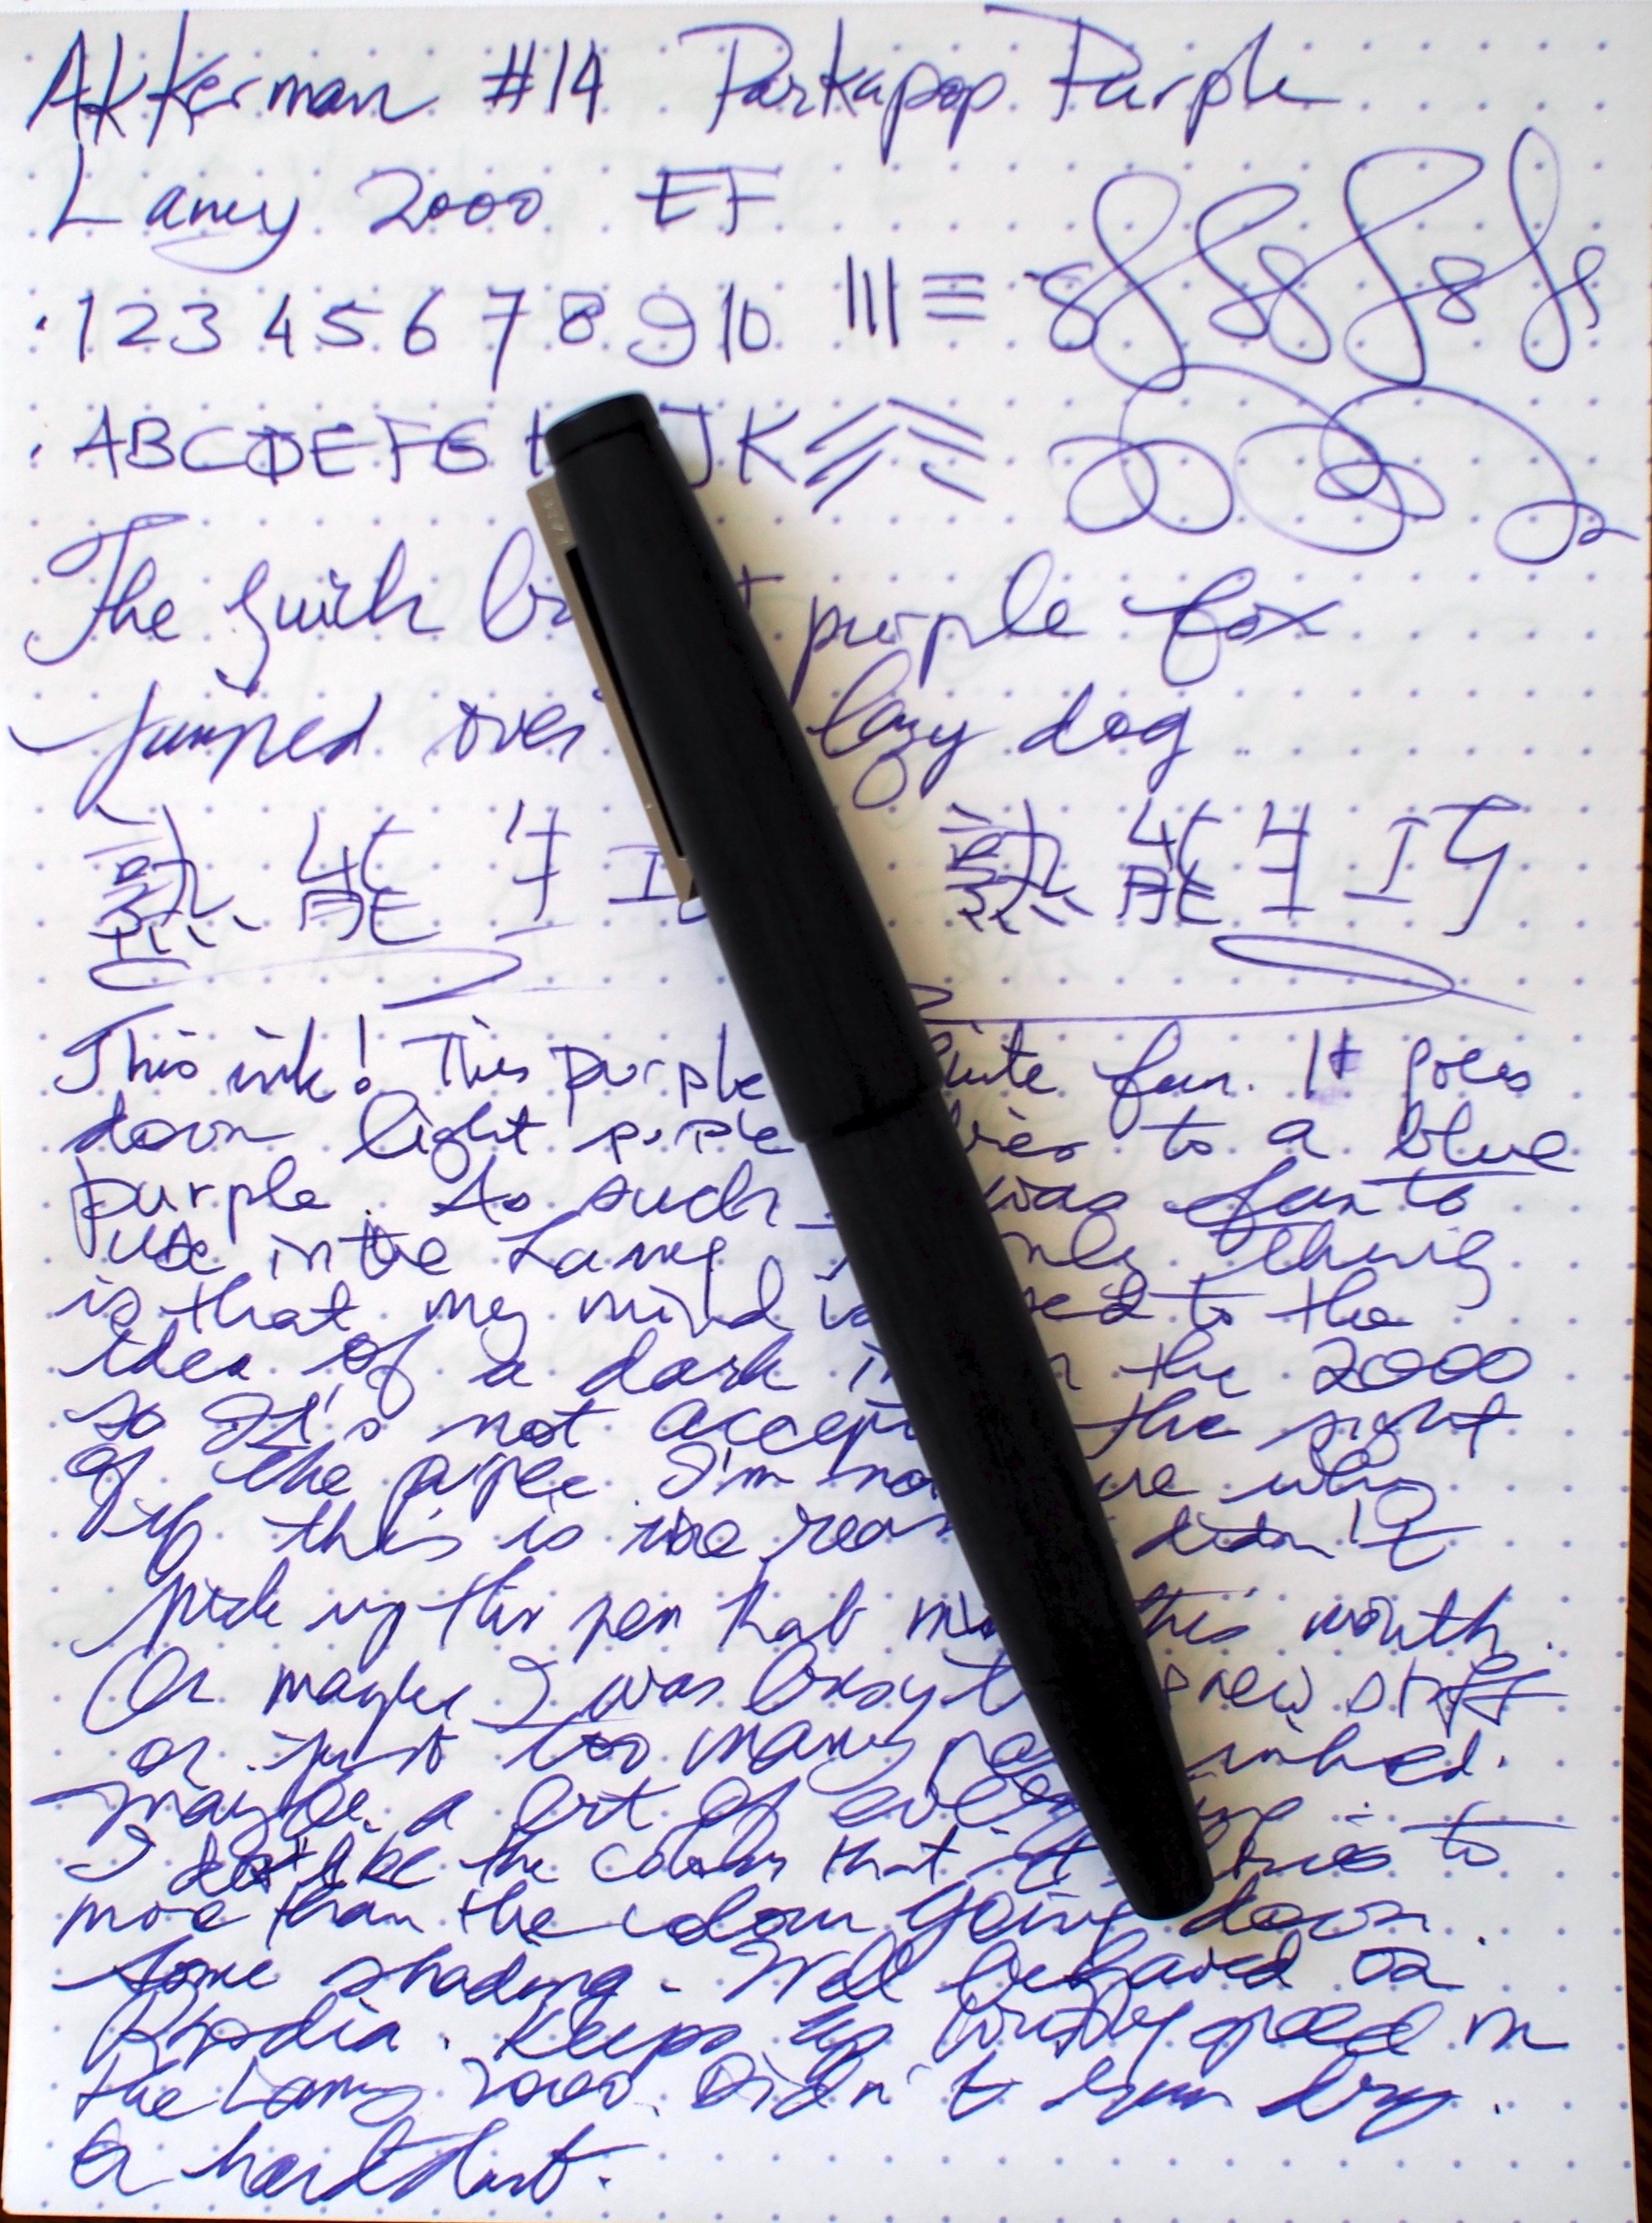 Akkerman #14 Parkapop Purple
Lamy 2000 EF
1 2 3 4 5 6 7 8 9 10
A B C D E F G J K
The quick purple fox
jumped over lazy dog
熟能生 熟能生巧
This ink! This purple fun. It goes
down light purple to a blue
purple. As such was fun to
use in the Lamy. thing
is that my mind is to the
idea of a dark the 2000
so It's not the sight
of the purple. I'm why
if this is the didn't
pick up this pen that this month.
Or maybe I was busy new stuff
or just too many inked.
maybe a bit of
I do like the colour that it dries to
more than the colour going down.
Some shading. Well behaved on
Rhodia. Keeps up writing speed in
the Lamy 2000. Didn't run dry.
or hardstart.